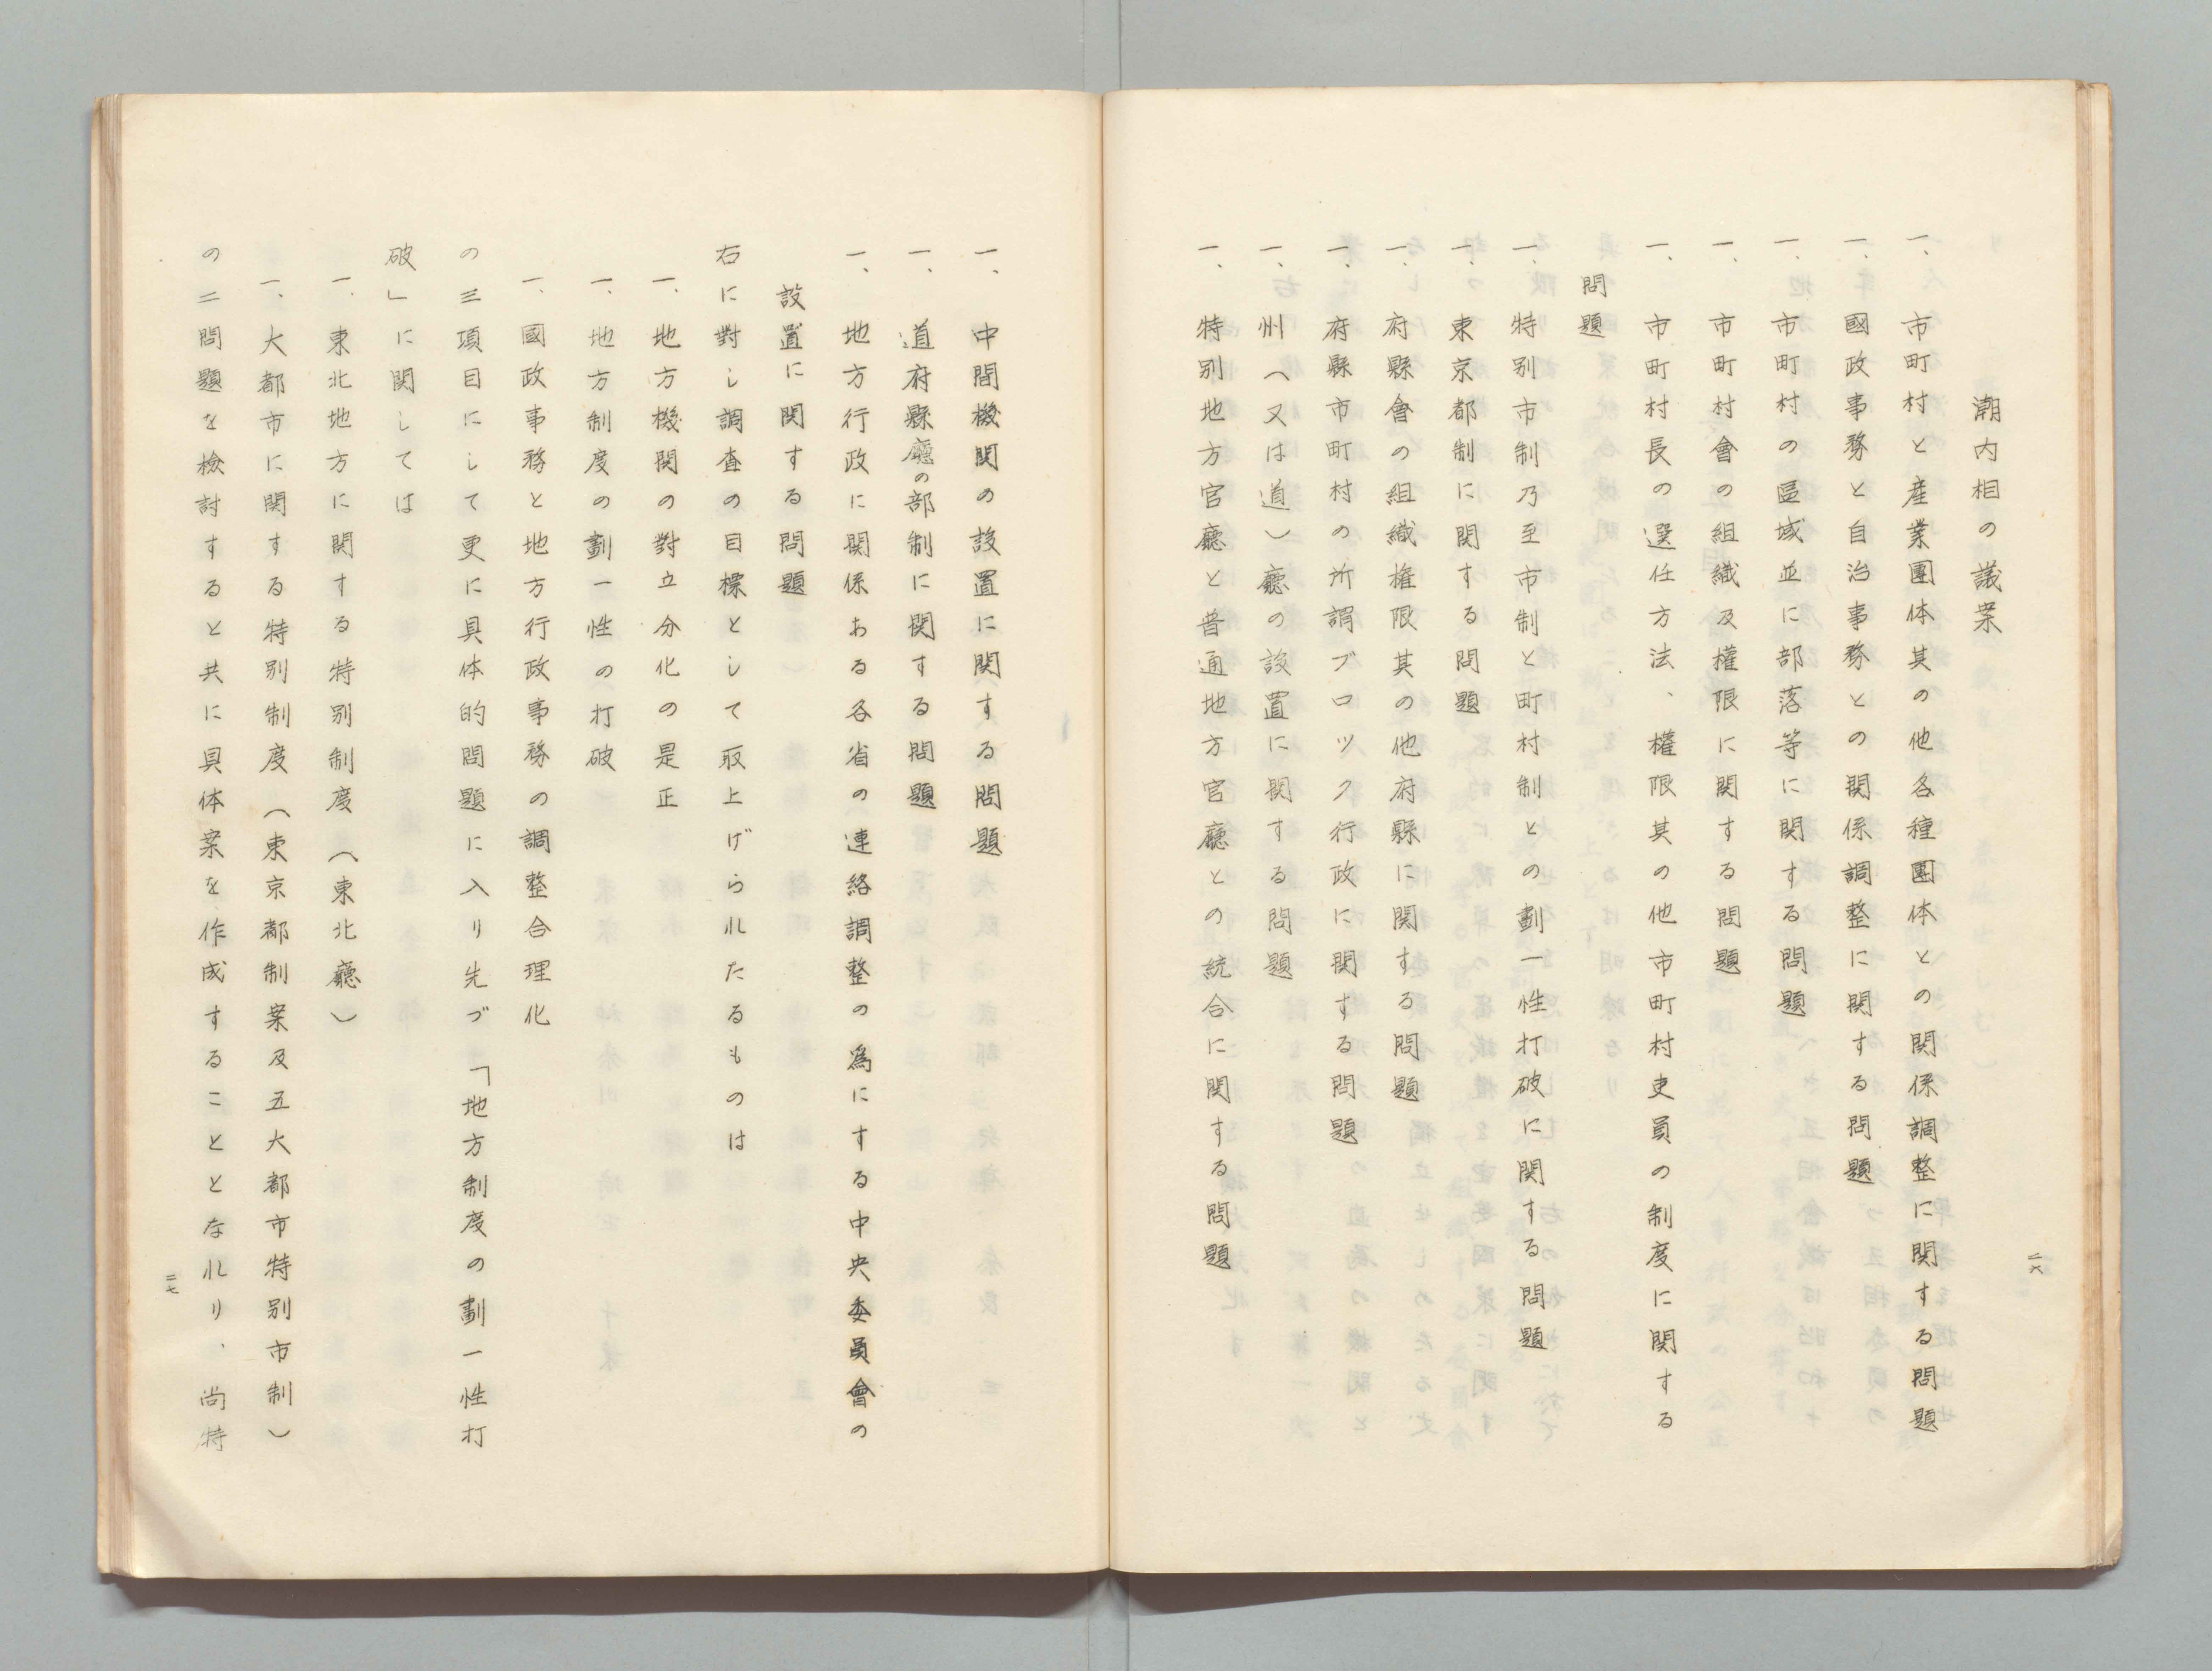 潮内相の議案
一、市町村と産業團体其の他各種團体との関係調整に関する問題
一、國政事務と自治事務との関係調整に関する問題
一、市町村の區域並に部落等に関する問題
一、市町村會の組織及權限に関する問題
一、市町村長の選任方法、權限其の他市町村吏員の制度に関する
問題
一、特別市制乃至市制と町村制との劃一性打破に関する問題
一、東京都制に関する問題
一、府縣會の組織権限其の他府縣に関する問題
一、府縣市町村の所謂ブロツク行政に関する問題
一、州（又は道）廳の設置に関する問題
一、特別地方官廳と普通地方官廳との統合に関する問題
二六
一、中間機関の設置に関する問題
一、道府縣廳の部制に関する問題
一、地方行政に関係ある各省の連絡調整の為にする中央委員會の
設置に関する問題
右に對し調査の目標として取上げられたるものは
一、地方機関の對立分化の是正
一、地方制度の劃一性の打破
一、國政事務と地方行政事務の調整合理化
の三項目にして更に具体的問題に入り先づ「地方制度の劃一性打
破」に関しては
一、東北地方に関する特別制度（東北廳）
一、大都市に関する特別制度（東京都制案及五大都市特別市制）
の二問題を檢討すると共に具体案を作成することとなれり、尚特
二七